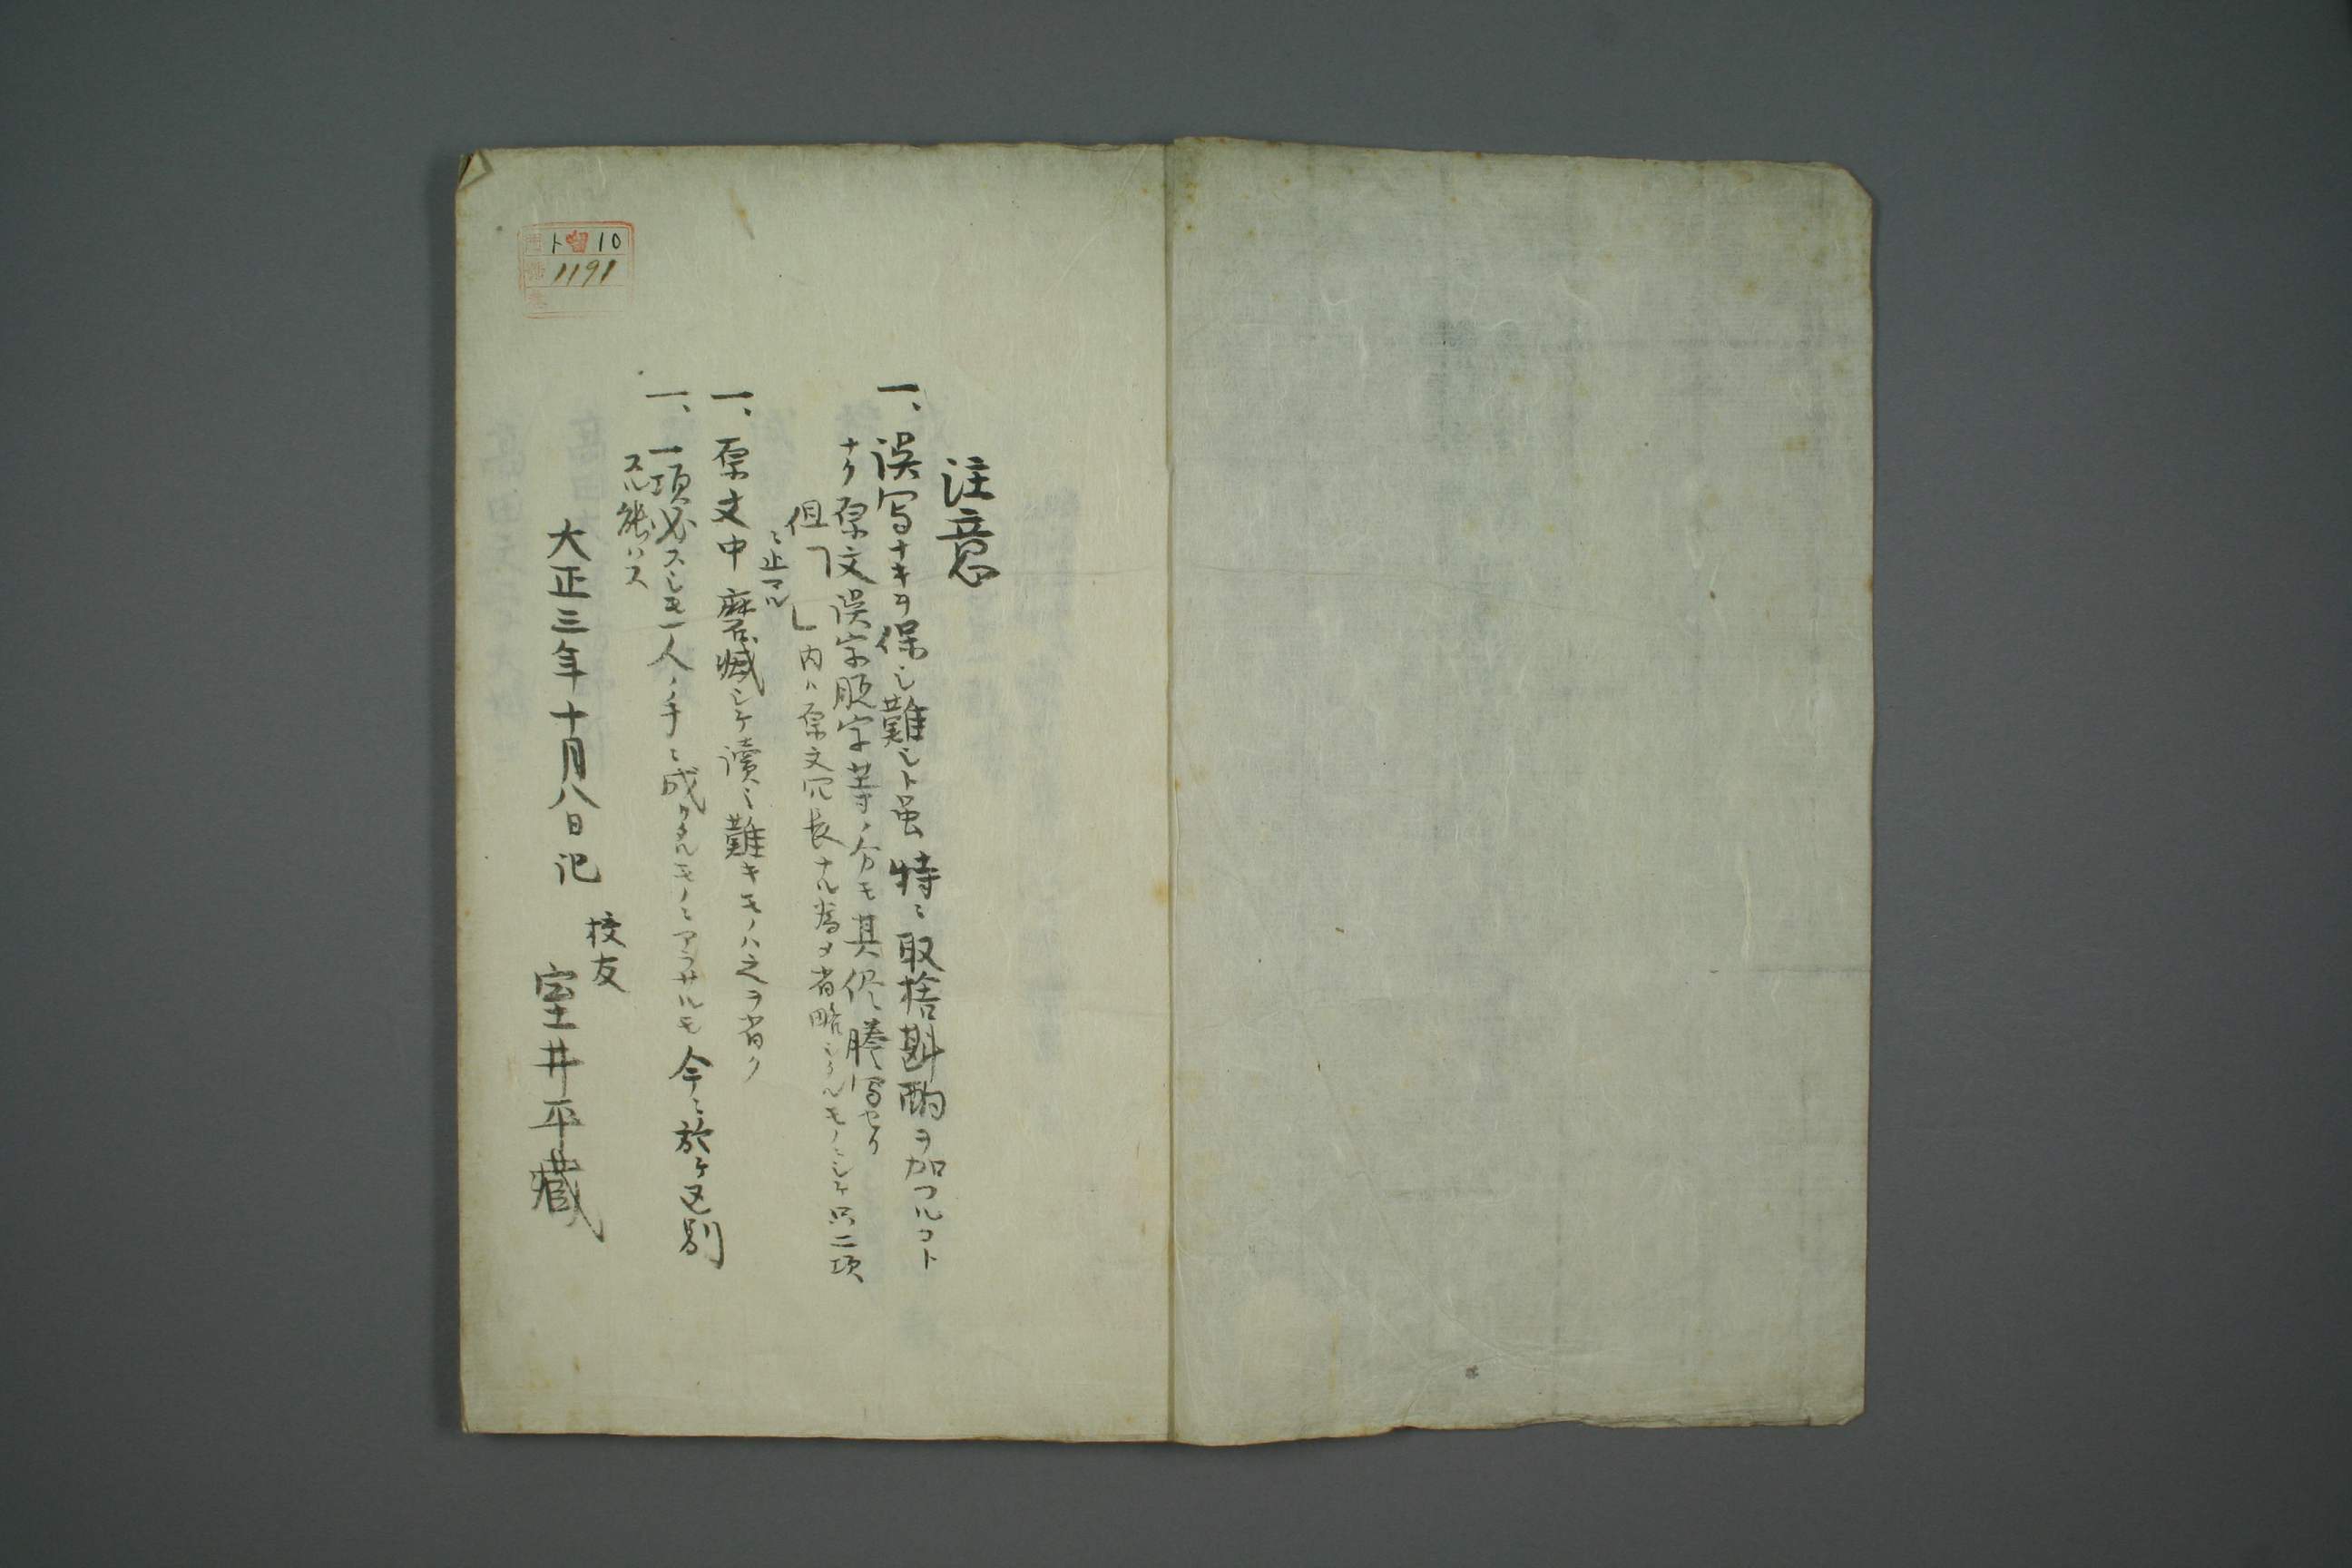 注意
一、誤写ナキヲ保シ難シト虽特ニ取捨斟酌ヲ加フルコト
ナク原文誤字脱字等ノ分モ其侭ニ謄写セリ
但「　」内ハ原文冗長ナル為メ省略シタルモノニシテ只二項
ニ止マル
一、原文中磨滅シテ讀ミ難キモノハ之ヲ省ク
一、一項必スシモ一人ノ手ニ成リタルモノニアラサルモ今ニ於テ区別
スル能ハス
大正三年十月八日記
校友
室井平藏
門 ト 10
號 1191
巻